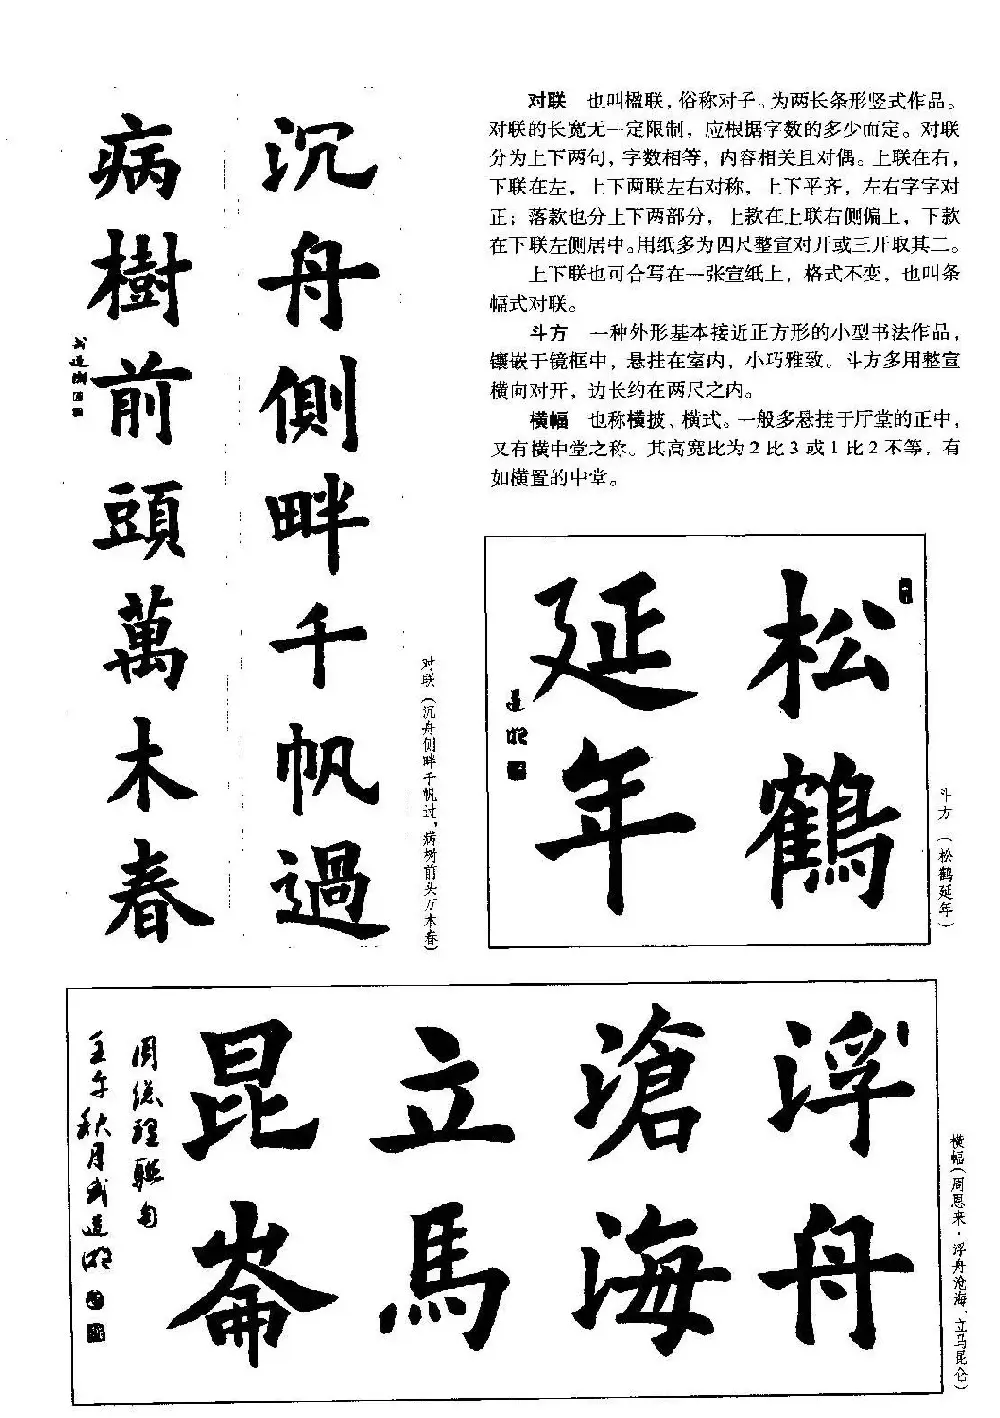 对联　也叫楹联，俗称对子、为两长条形竖式作品。
对联的长宽无一定限制，应根据字数的多少而定。对联
分为上下两句，字数相等，内容相关且对偶。上联在右，
下联在左，上下两联左右对称，上下平齐，左右字字对
正；落款也分上下两部分，上款在上联右侧偏上，下款
在下联左侧居中。用纸多为四尺整宣对开或三开取其二。
上下联也可合写在一张宣纸上，格式不变，也叫条
幅式对联。
斗方　一种外形基本接近正方形的小型书法作品，
镶嵌于镜框中，悬挂在室内，小巧雅致。斗方多用整宣
横向对开，边长约在两尺之内。
横幅　也称横披、横式。一般多悬挂于厅堂的正中，
又有横中堂之称。其高宽比为2比3或1比2不等，有
如横置的中堂。
沉舟側畔千帆過
病樹前頭萬木春
对联（沉舟侧畔千帆过，病树前头万木春）
松鶴
延年
斗方（松鹤延年）
浮舟
滄海
立馬
崑崙
周總理聯句
壬午秋月武道
横幅（周恩来·浮舟沧海、立马昆仑）